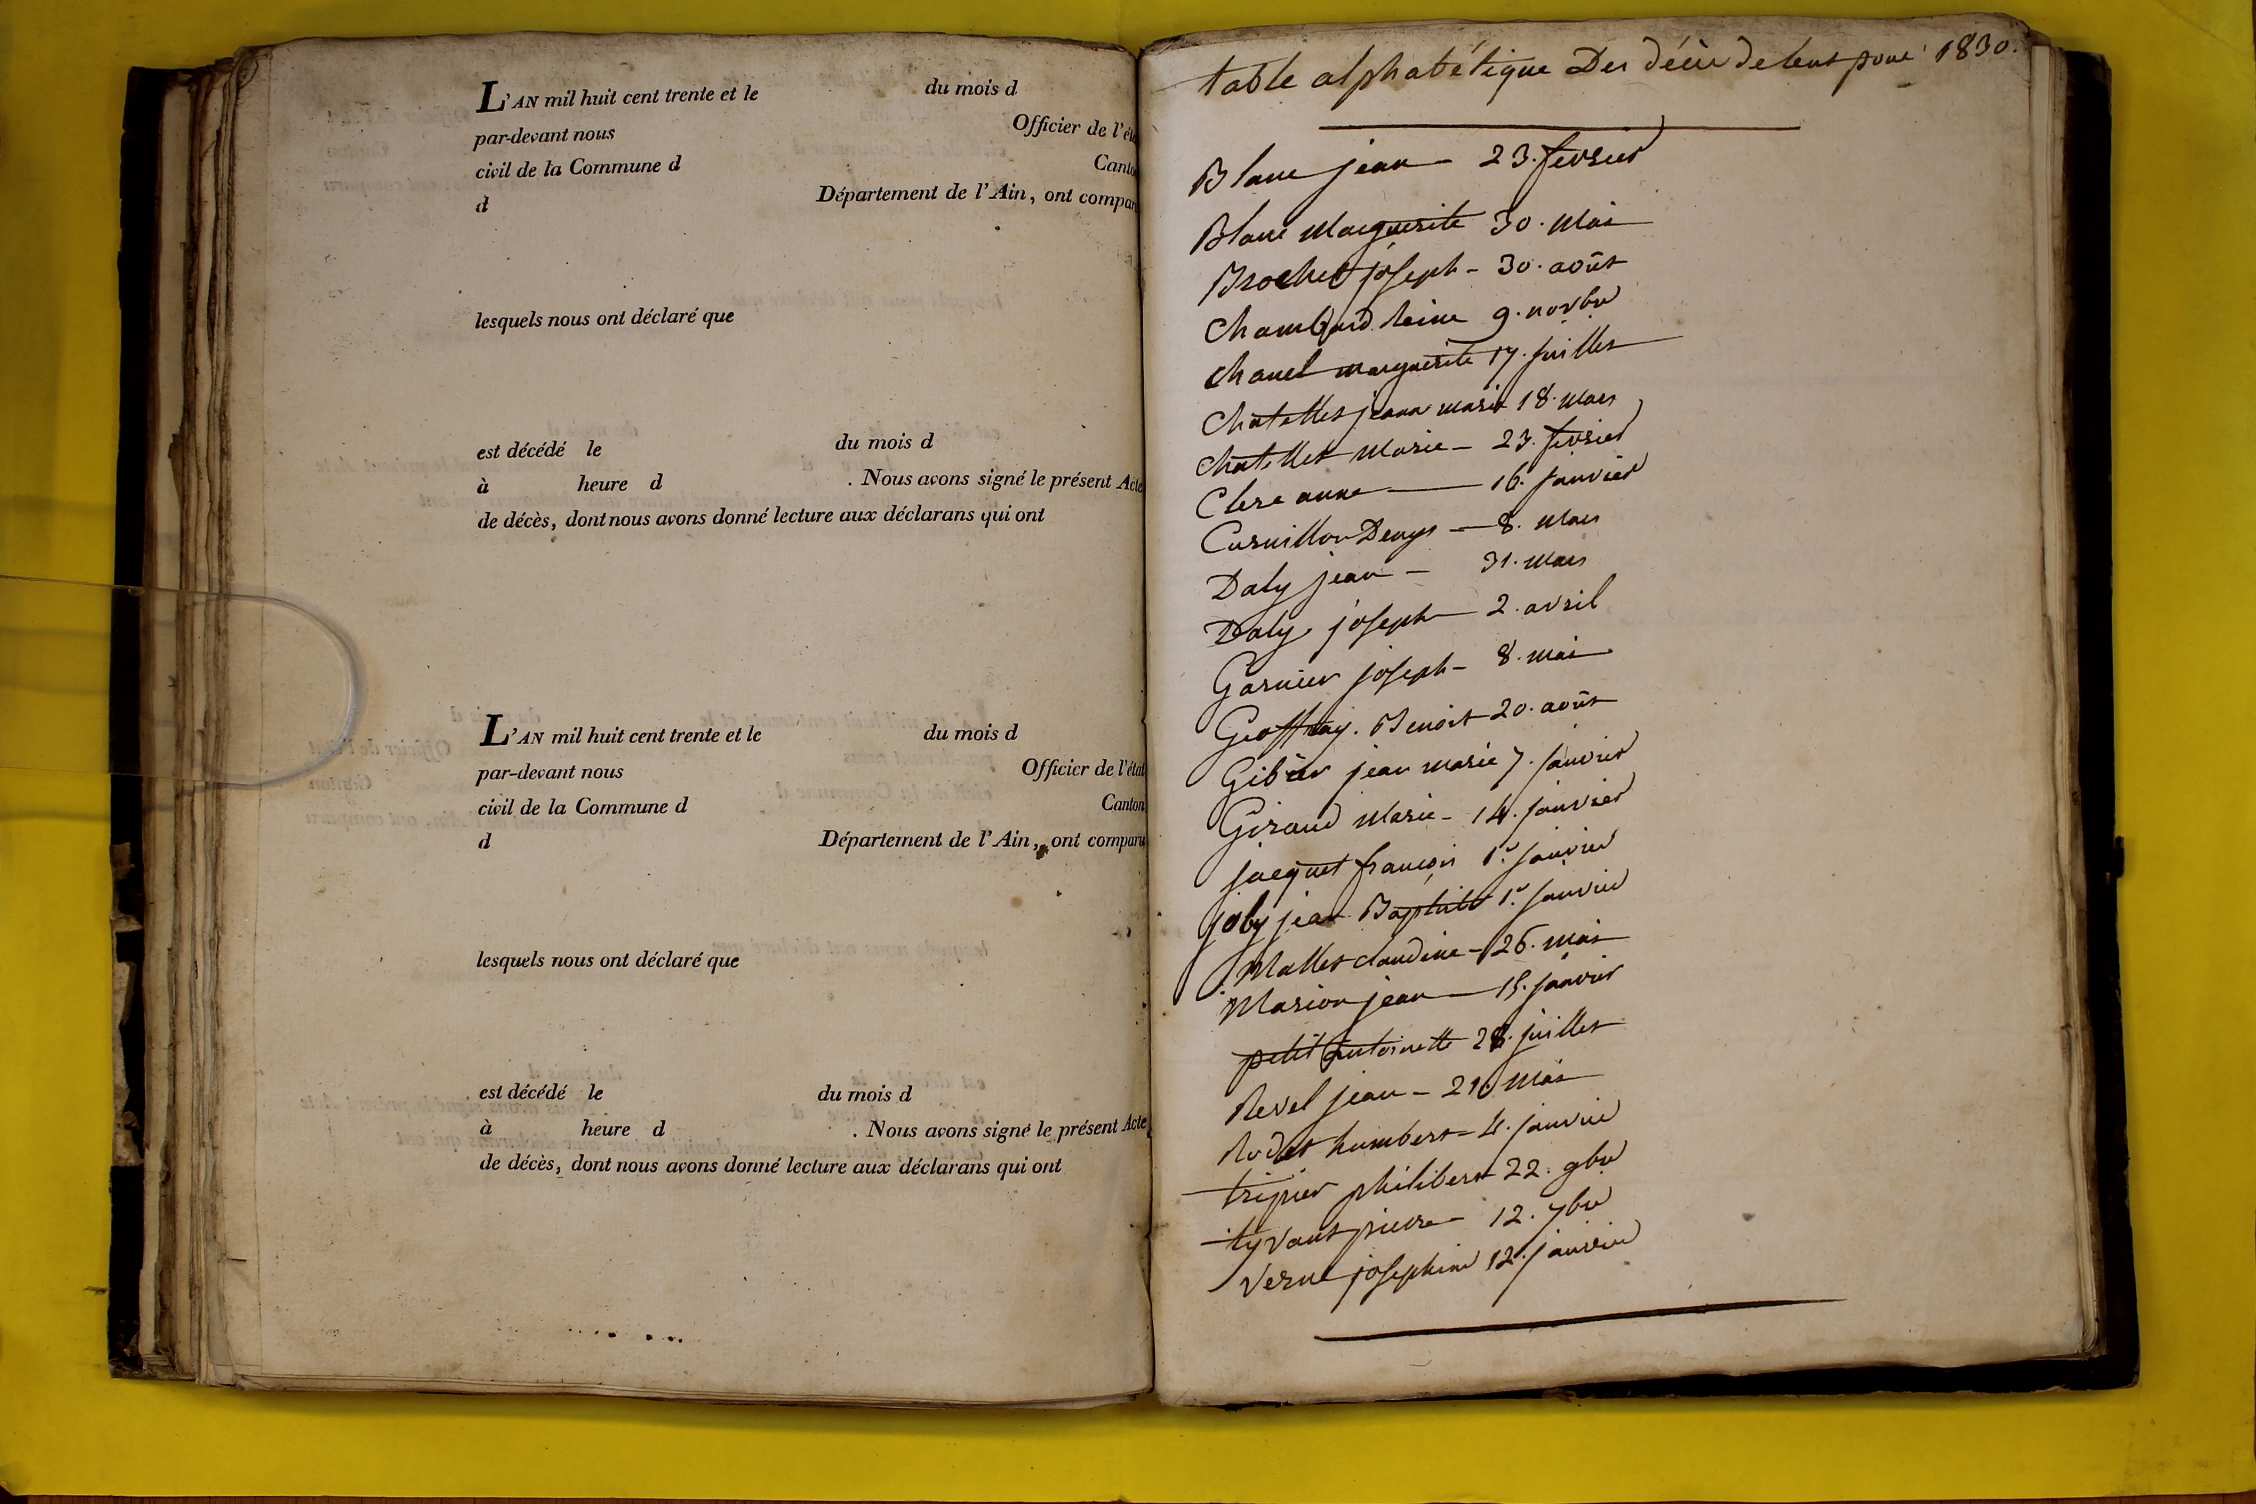 L'AN mil huit cent trente et le du mois d
par-devant nous Officier de l'éta
civil de la Commune d Canton
d Département de l'Ain, ont comparu
lesquels nous ont déclaré que
est décédé le du mois d
à heure d . Nous avons signé le présent Acte
de décès, dont nous avons donné lecture aux déclarans qui ont
L'AN mil huit cent trente et le du mois d
par-devant nous Officier de l'état
civil de la Commune d Canton
d Département de l'Ain, ont comparu
lesquels nous ont déclaré que
est décédé le du mois d
à heure d . Nous avons signé le présent Acte
de décès, dont nous avons donné lecture aux déclarans qui ont
table alphabétique Des décès de lent pour 1830.
Blanc jean - 23. fevrier
Blanc Marguerite 30. Mai
Brochet joseph - 30. août
Chambard Reine 9. novbre
Chanel marguerite 17. juillet
Chatellet jeanne marie 18. Mars
Chatellet Marie - 23. fevrier
Clerc anne - 16. janvier
Curnillon Denys - 8. Mars
Daly jean - 31. Mars
Daly joseph - 2. avril
Garnier joseph - 8. mai
Geoffray. Benoit 20. août
Gibier jean marie 7. janvier
Giraud Marie - 14. janvier
jacquet françois 1.er janvier
joly jean Baptiste 1.er janvier
Mallet claudine - 26. mai
Marion jean - 15. janvier
petit Antoinette 28. juillet
Revel jean - 21. Mai
Rodet humbert - 4. janvier
tripier philibert 22. 9bre
tyvant pierre - 12. 7bre
Verne josephine 12. janvier